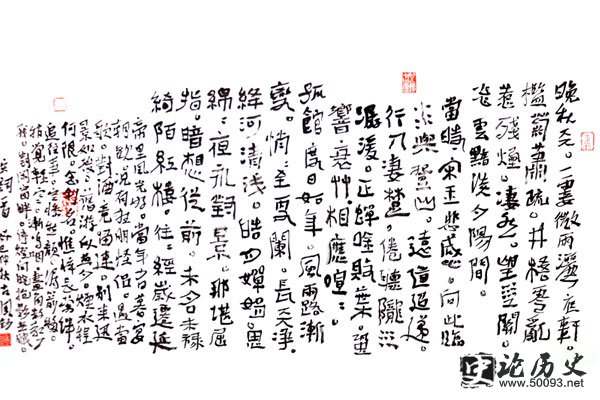 晚秋天。一霎微雨灑庭軒。
檻菊蕭疏。井梧零亂
惹殘煙。淒然。望江關。
飛雲黯淡夕陽間。
當時宋玉悲感。向此臨
水與登山。遠道迢遞。
行人淒楚。倦聽隴水
潺湲。正蟬吟敗葉。蛩
響衰艸。相應喧〻。
孤館度日如年。風雨路漸
變。悄〻至更闌。長天淨
絳河清淺。皓月嬋娟。思
綿〻。夜永對景。那堪屈
指。暗想從前。未名未祿
綺陌紅樓。往〻經歲遷延
帝里風光好。當年少日暮宴
朝歡。況有狂朋怪侶。遇當
歌。對酒竟留連。別來迅
景如梭。舊遊似夢。煙水程
何限。念利名。憔悴長縈絆。
追往事。空慘愁顏。漏箭移。
稍覺輕寒。漸嗚咽畫角數聲
殘。對閒窗畔。停燈向曉抱影無眠。
论历史
www.50093.net